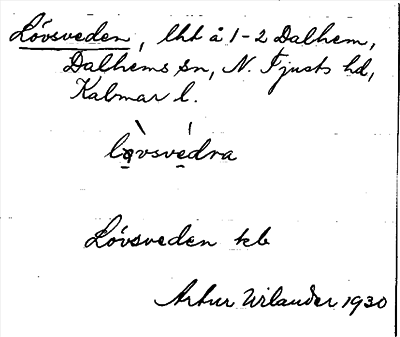 Lövsveden, lht å 1-2 Dalhem,
Dalhems sn, N. Tjusts hd,
Kalmar l.
lǫ̀vsvédra
Lövsveden kb
Artur Wilander 1930